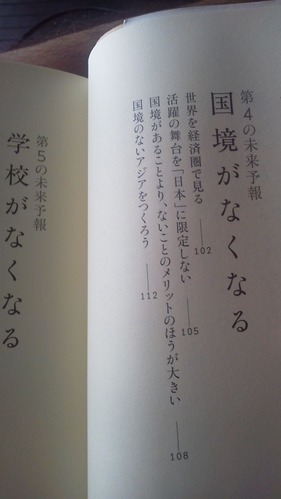 第4の未来予報
国境がなくなる
世界を経済圏で見る 102
活躍の舞台を「日本」に限定しない 105
国境があることより、ないことのメリットのほうが大きい 108
国境のないアジアをつくろう 112
第5の未来予報
学校がなくなる